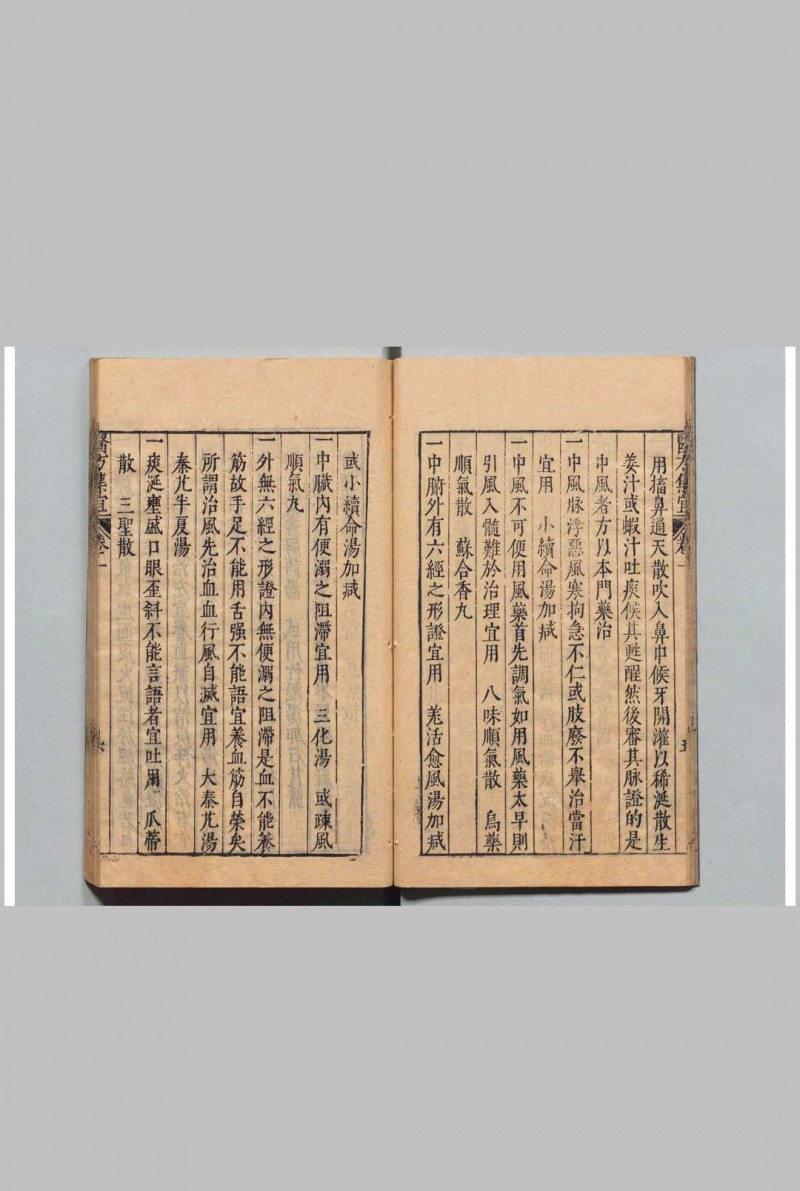 用搐鼻通天散吹入鼻中候牙關灌以稀涎散生
姜汁或蝦汁吐痰候其甦醒然後審其脉證的是
中風者方以本門藥治
一中風脉浮惡風寒拘急不仁或肢廢不舉治當汗
宜用　小續命湯加减
一中風不可便用風藥首先調氣如用風藥太早則
引風入髓難於治理宜用　八味順氣散　烏藥
順氣散　蘇合香丸
一中腑外有六經之形證宜用　羌活愈風湯加减
醫方集宜　卷一　五
或小續命湯加减
一中臟內有便溺之阻滯宜用　三化湯　或疎風
順氣丸
一外無六經之形證內無便溺之阻滯是血不能養
筋故手足不能用舌强不能語宜養血筋自榮矣
所謂治風先治血血行風自滅宜用　大秦艽湯
秦艽半夏湯
一痰涎壅盛口眼歪斜不能言語者宜吐用　瓜蒂
散　三聖散
醫方集宜　卷一　六